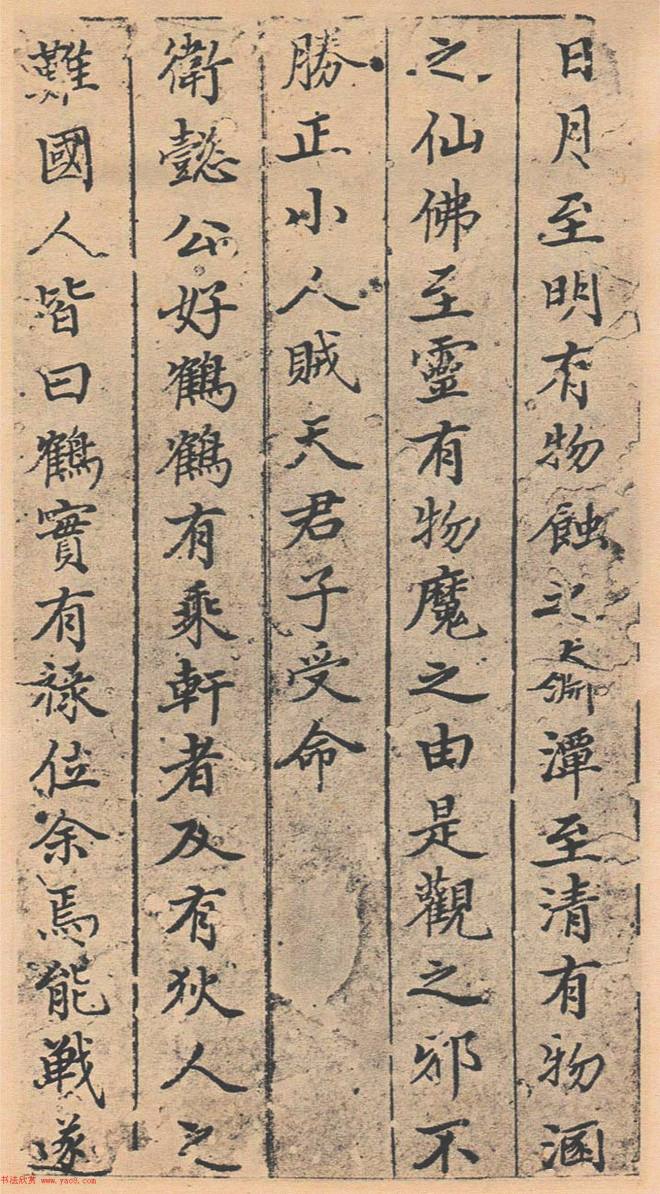 日月至明有物蝕之潭至清有物溷
之仙佛至靈有物魔之由是觀之邪不
勝正小人賊天君子受命
衛懿公好鶴鶴有乘軒者及有狄人之
難國人皆曰鶴實有祿位余焉能戰遂
书法欣赏 www.yac8.com